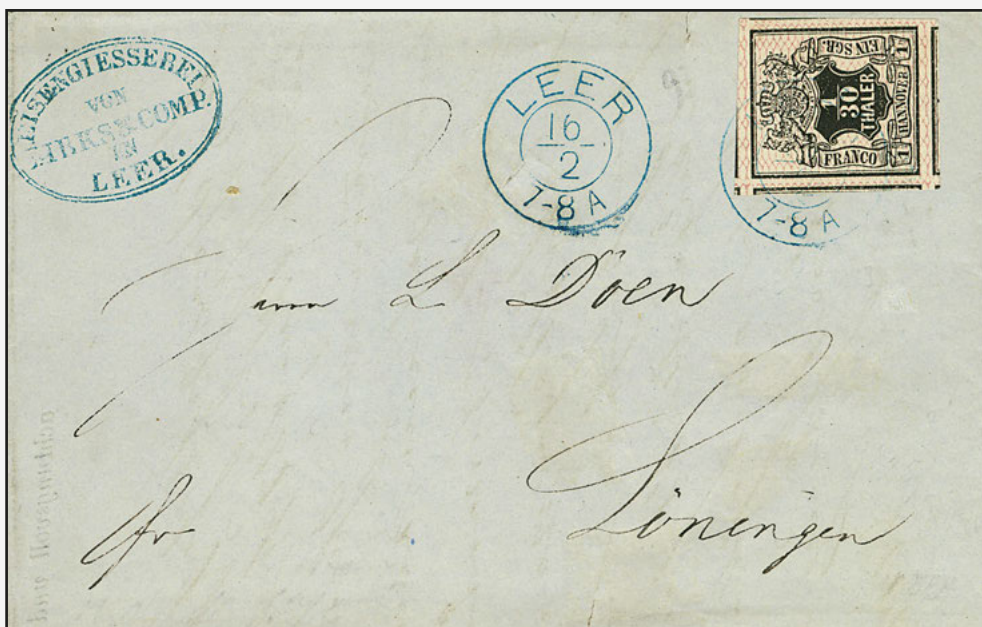 EISENGIESSEREI
VON
DIRKS & COMP.
IN
LEER.
LEER
16
2
7-8 A
7-8 A
EIN SGR.
1
30
THALER
HANNOVER
1
1
FRANCO
Herrn L Doen
fr
Löningen